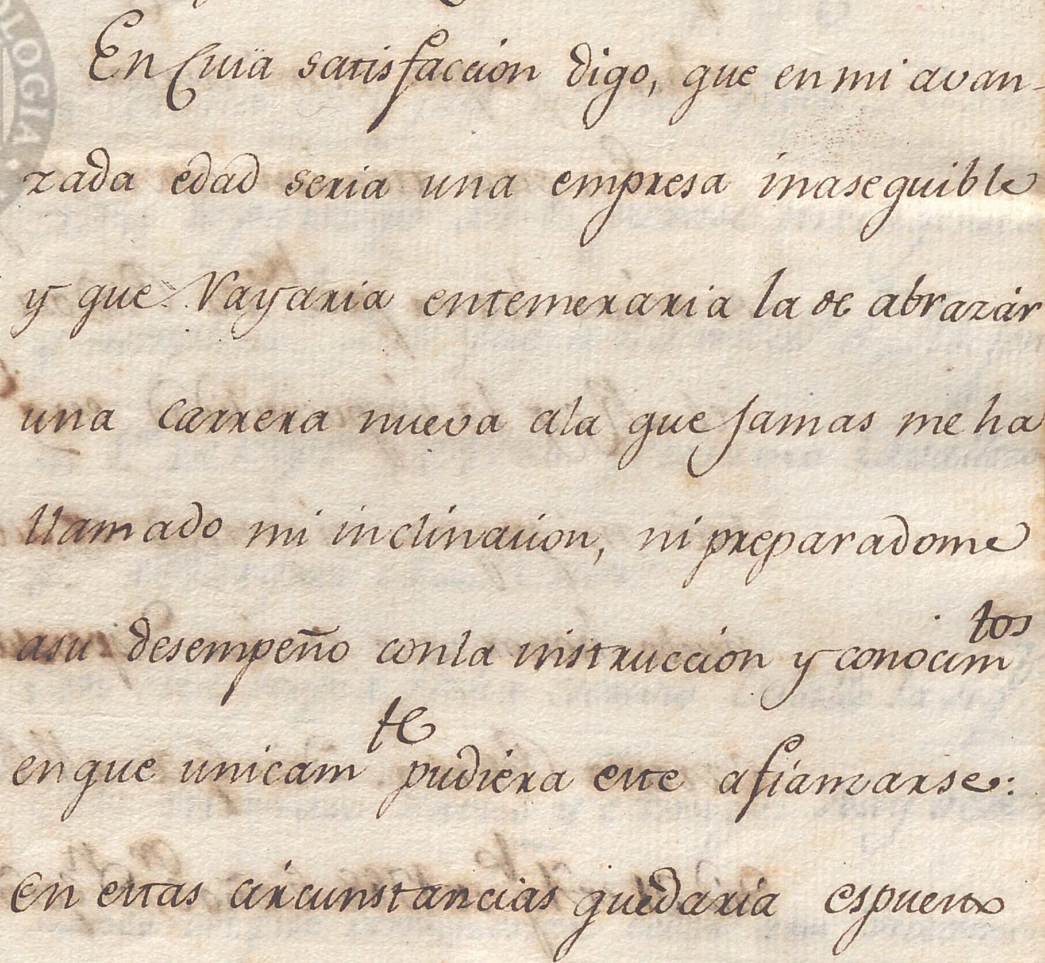 OLOGIA.
En Cuia satisfaccion digo, que en mi avan-
zada edad seria una empresa inaseguible
y que Rayaria entemeraria la de abrazár
una carrera nueva ala que Jamas me ha
llamado mi inclinacion, ni preparadome
asu desempeño conla instruccion y conocimtos
enque unicamte pudiera este afianzarse:
En estas circunstancias quedaria espuesto